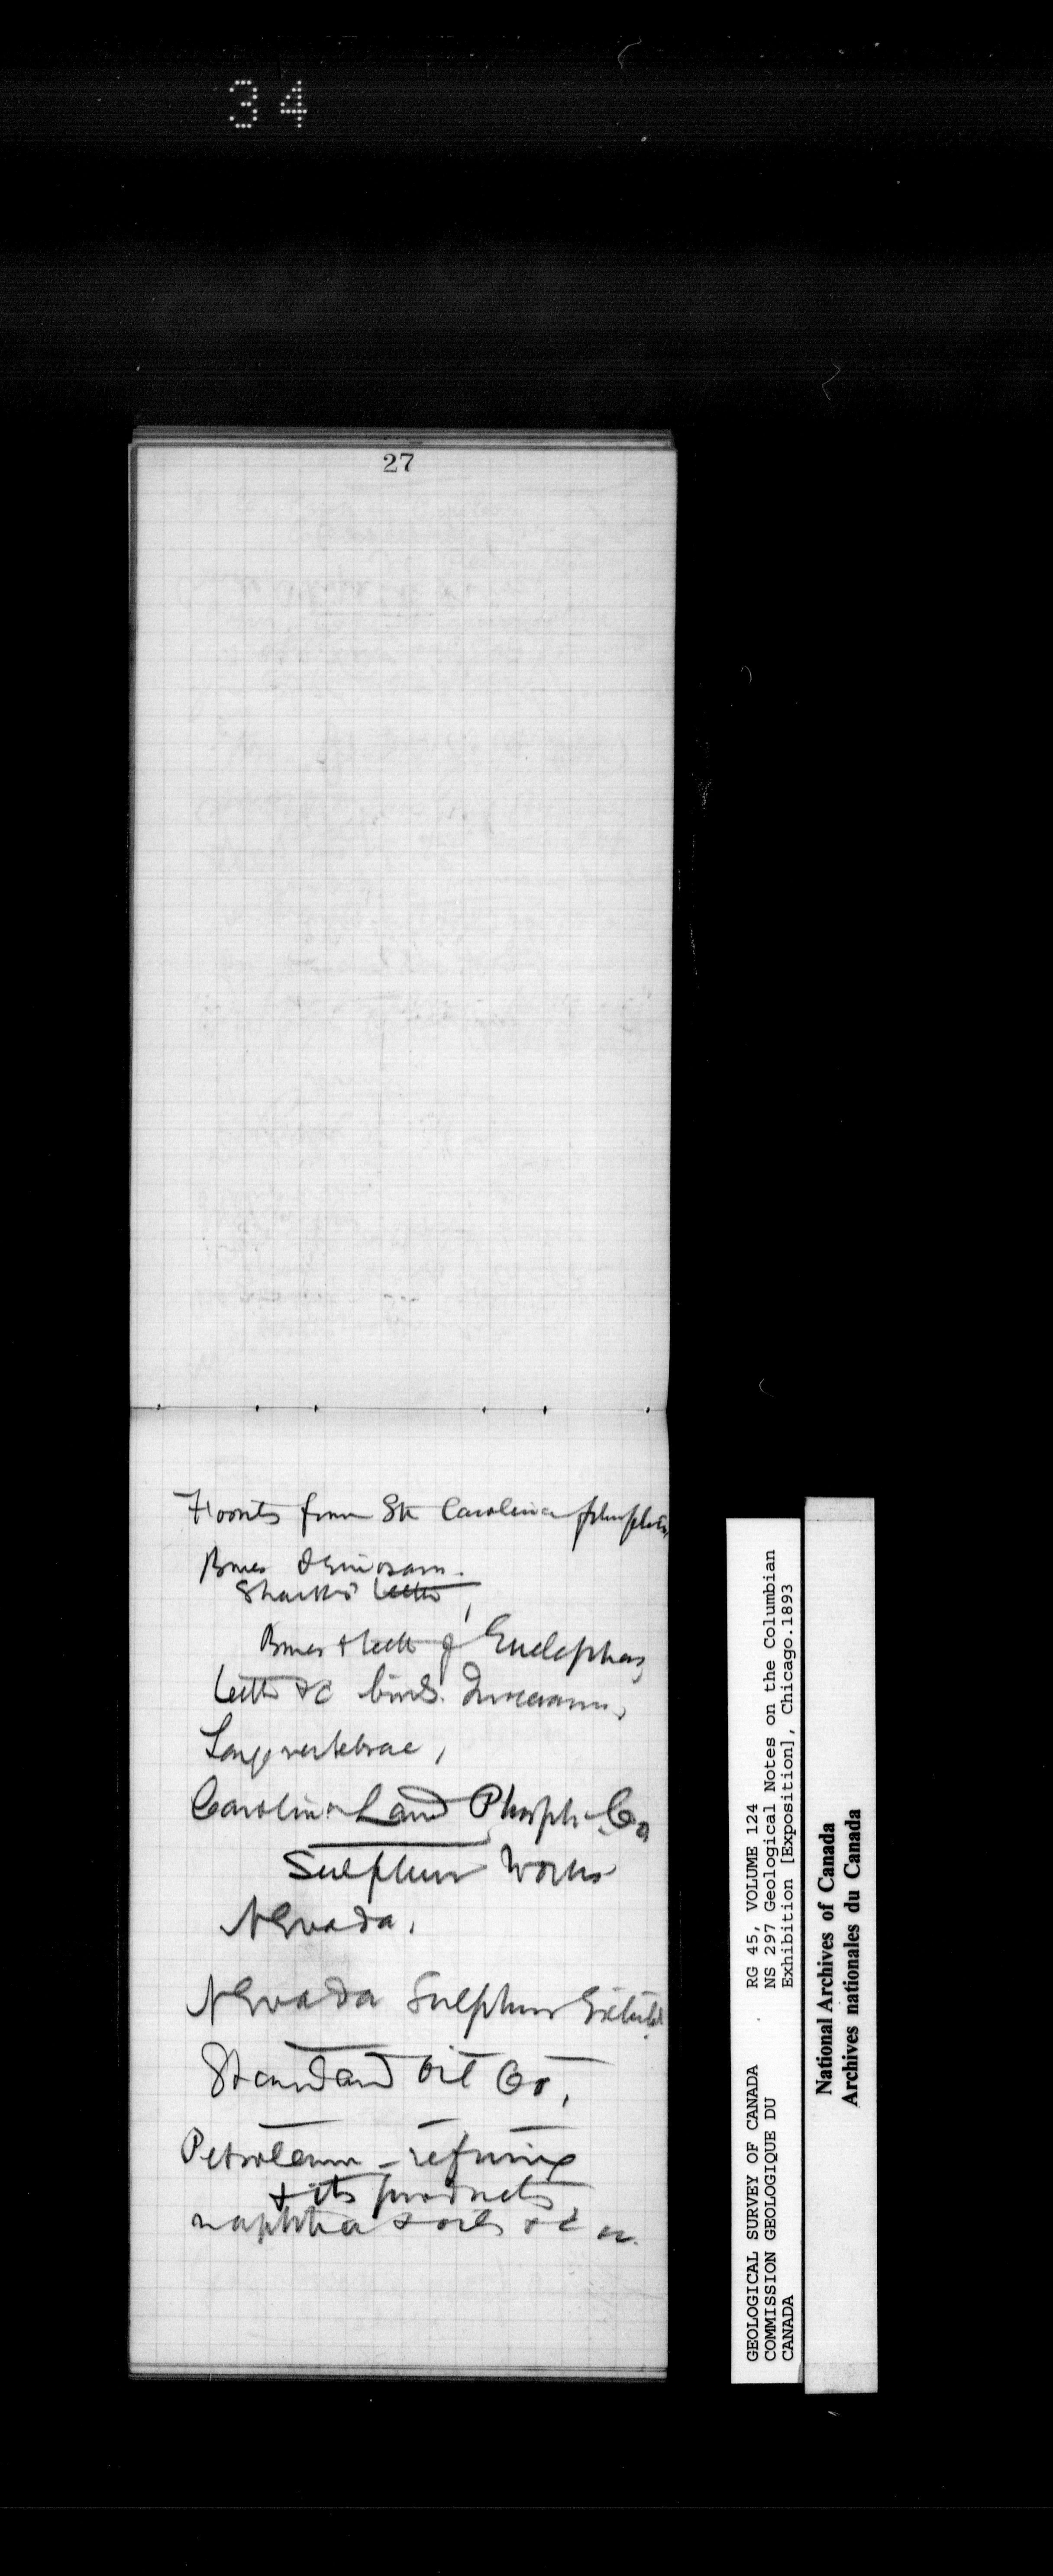 34
27
from Sth Carolina
Bones
Sharks teeth,
Bones & teeth of Euelephas
teeth &c birds.
Large vertebrae,
Carolina Land Phosph. Co
Sulphur Works
Nevada.
Nevada Sulphur Exhibit
Standard Oil Co,
Petroleum - refining
& its products,
naphtha & oils &c
GEOLOGICAL SURVEY OF CANADA RG 45, VOLUME 124
COMMISSION GEOLOGIQUE DU NS 297 Geological Notes on the Columbian
CANADA Exhibition [Exposition], Chicago.1893
National Archives of Canada
Archives nationales du Canada